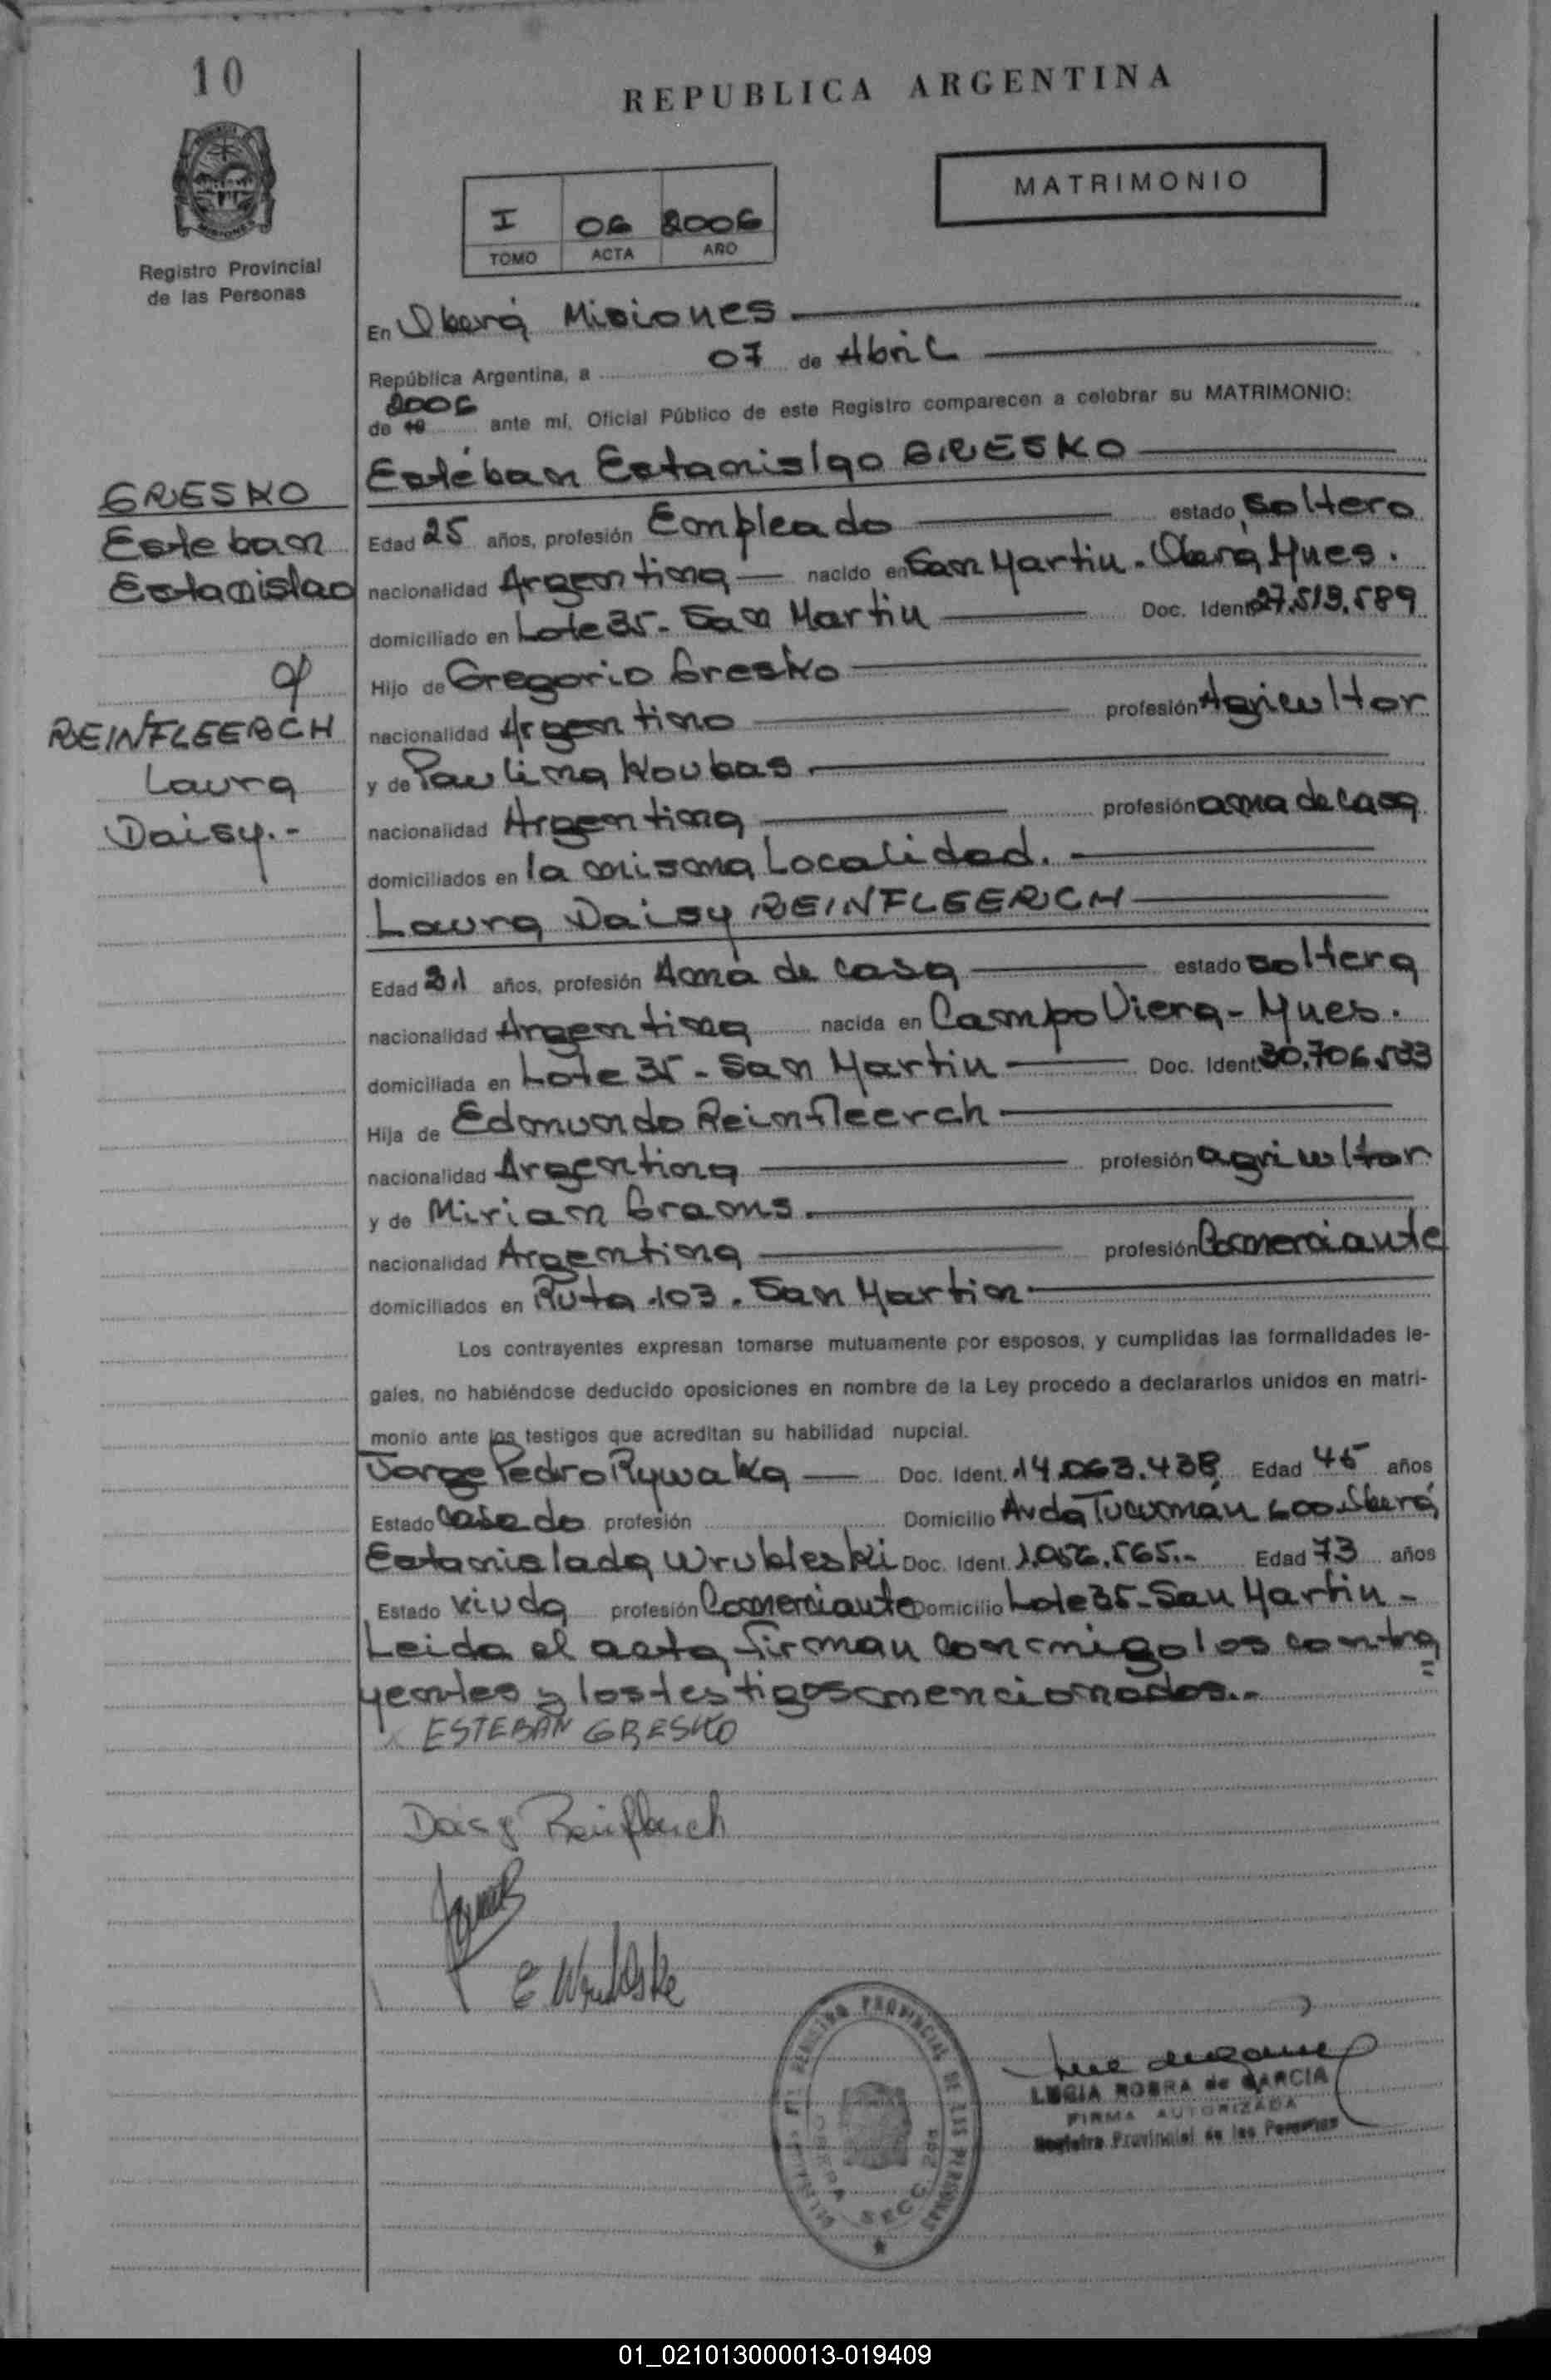 10
REPUBLICA ARGENTINA
MATRIMONIO
I 06 2006
TOMO ACTA AÑO
Registro Provincial
de las Personas
En Oberá Misiones
República Argentina, a 07 de Abril
2006
de 19 ante mí, Oficial Público de este Registro comparecen a celebrar su MATRIMONIO:
Estéban Estanislao GRESKO
GRESKO
Esteban
Estanislao
Edad 25 años, profesión Empleado estado soltero
nacionalidad Argentina nacido en San Martin. Oberá Mnes.
domiciliado en Lote 35- San Martin Doc. Ident. 27.519.589
Hijo de Gregorio Gresko
nacionalidad Argentino profesión Agricultor
y de Paulina Koubas.
nacionalidad Argentina profesión ama de casa
domiciliados en la misma Localidad.
REINFLEERCH
Laura
Daisy.-
Laura Daisy REINFLEERCH
Edad 21 años, profesión Ama de casa estado soltera
nacionalidad Argentina nacida en Campo Viera- Mnes.
domiciliada en Lote 35- San Martin Doc. Ident. 30.706.533
Hija de Edmundo Reinfleerch
nacionalidad Argentina profesión agricultor
y de Miriam Grams.
nacionalidad Argentina profesión Comerciante
domiciliados en Ruta 103. San Martin
Los contrayentes expresan tomarse mutuamente por esposos, y cumplidas las formalidades le-
gales, no habiéndose deducido oposiciones en nombre de la Ley procedo a declararlos unidos en matri-
monio ante los testigos que acreditan su habilidad nupcial.
Jorge Pedro Rywaka Doc. Ident. 14.063.438 Edad 45 años
Estado Casado profesión Domicilio Avda Tucumán 600 Oberá
Estanislada Wrubleski Doc. Ident. 1.056.565.- Edad 73 años
Estado Viuda profesión Comerciante Domicilio Lote 35-San Martin-
Leida el acta, firman conmigo los contra
yentes y los testigos mencionados.-
x ESTEBAN GRESKO
Daisy Reinfleerch
E. Wrubleske
REGISTRO PROVINCIAL DE LAS PERSONAS
OBERA SECC. 2da
GARCIA
FIRMA AUTORIZADA
Registro Provincial de las Personas
01_021013000013-019409